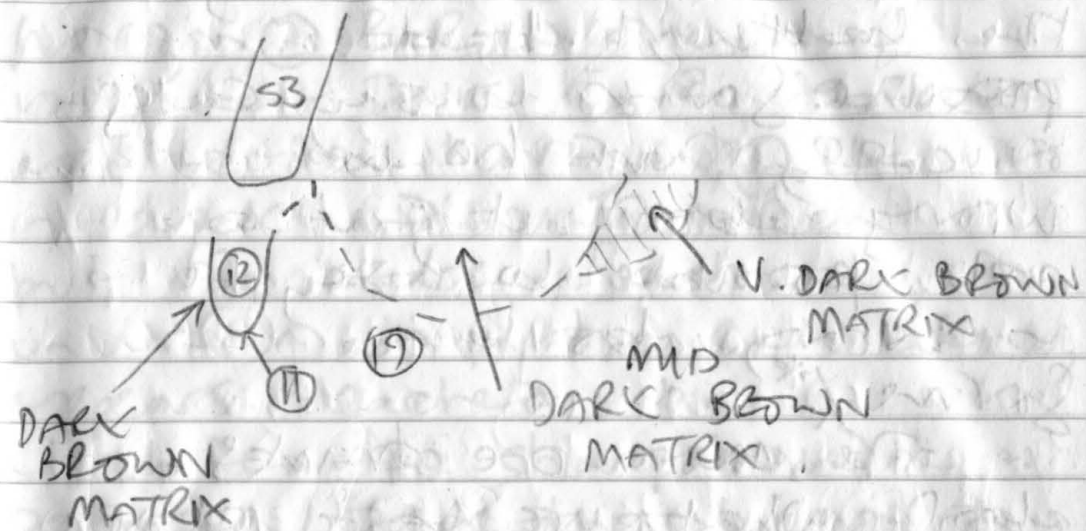 53
12
V. DARK BROWN
MATRIX
19
11
MID
DARK BROWN
MATRIX.
DARK
BROWN
MATRIX